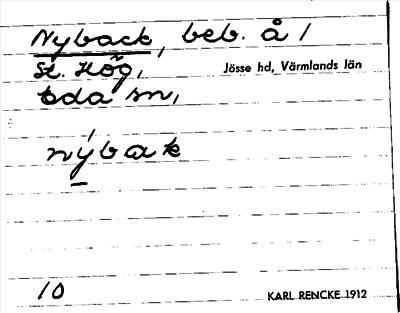 Nyback, beb. å 1
St. Hög,
Jösse hd, Värmlands län
Eda sn,
nýbak
10
KARL RENCKE 1912